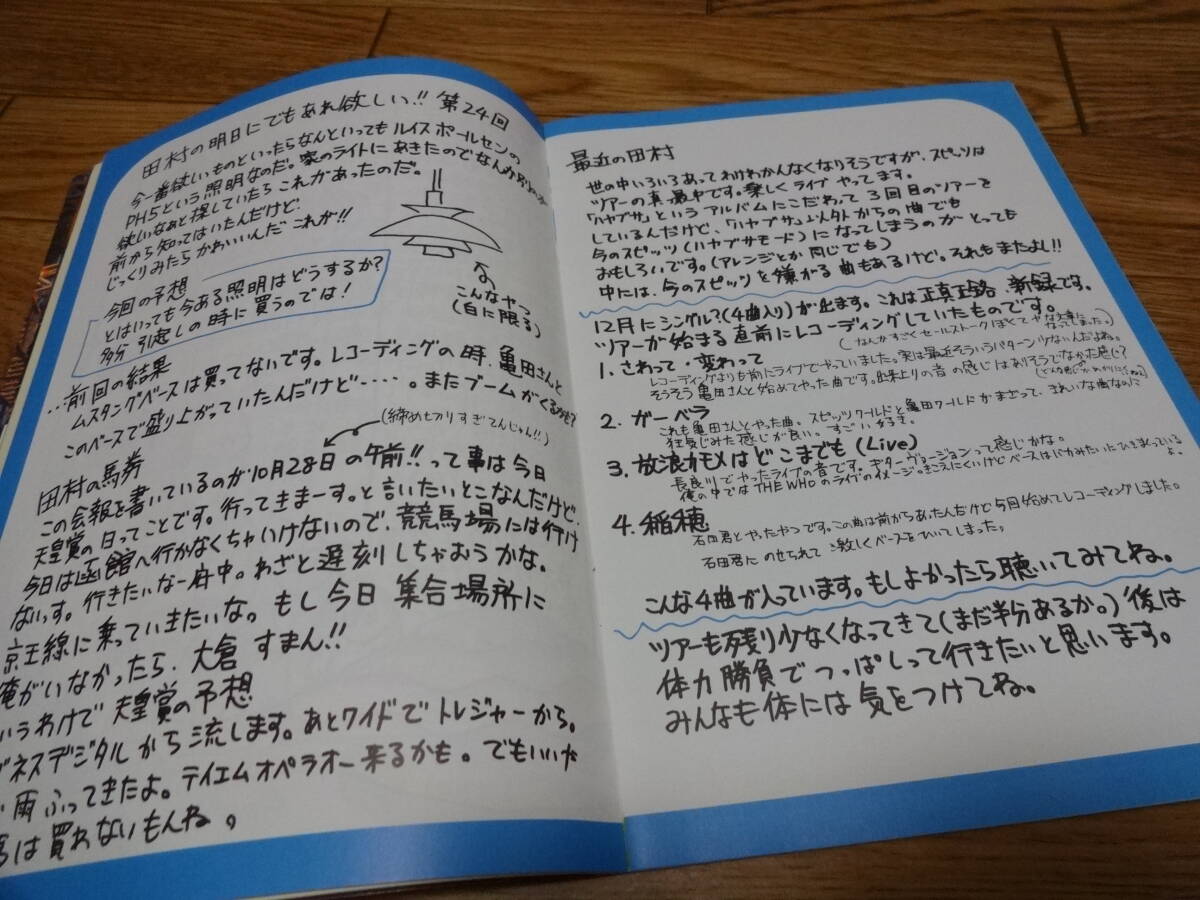 田村の明日にでもあれ欲しい!! 第24回
今一番欲しいものといったらなんといってもルイスポールセンの
PH5という照明なのだ。家のライトにあきたのでなんか
欲しいなぁと探していたらこれがあったのだ。
前から知ってはいたんだけど、
じっくりみたらかわいいんだこれが!!
こんなやつ
(白に限る)
今回の予想
とはいっても今ある照明はどうするか?
多分引起しの時に買うのでは!
前回の結果
ムスタングベースは買ってないです。レコーディングの時、亀田さんと
このベースで盛り上がっていたんだけど‥‥。またブームがくるかも?
(締め切りすぎてんじゃん!!)
田村の馬券
この会報を書いているのが10月28日の午前!!って事は今日
天皇賞の日ってことです。行ってきまーす。と言いたいとこなんだけど、
今日は函館へ行かなくちゃいけないので、競馬場には行け
ないっす。行きたいなー府中。わざと遅刻しちゃおうかな。
京王線に乗っていきたいな。もし今日集合場所に
俺がいなかったら、大倉すまん!!
いうわけで天皇賞の予想
グネスデジタルから流します。あとワイドでトレジャーから。
雨ふってきたよ。テイエムオペラオー来るかも。でもいいや
は買わないもんね。
最近の田村
世の中いろいろあってわけわかんなくなりそうですが、スピッツは
ツアーの真最中です。楽しくライブやってます。
「ハヤブサ」というアルバムにこだわって3回目のツアーを
しているんだけど、「ハヤブサ」以外からの曲でも
今のスピッツ(ハヤブサモード)になってしまうのがとっても
おもしろいです。(アレンジとか同じでも)
中には、今のスピッツを嫌がる曲もあるけど。それもまたよし!!
12月にシングル?(4曲入り)が出ます。これは正真正銘、新録です。
ツアーが始まる直前にレコーディングしていたものです。
(なんかすごくセールストークぽくてやな文章になってしまった。)
1. さわって・変わって
レコーディングよりも前にライブでやっていました。実は最近そういうパターン少ないんだよね。
そうそう亀田さんと始めてやった曲です。出来上りの音の感じはありそうでなかった感じ?
2. ガーベラ
これも亀田さんとやった曲。スピッツワールドと亀田ワールドがまざって、きれいな曲なのに
狂気じみた感じが良い。すごい好き。
3. 放浪カモメはどこまでも (Live)
長良川でやったライブの音です。ギターヴァージョンって感じかな。
俺の中ではTHE WHOのライブのイメージ。きこえにくいけどベースはバカみたいにひきまくっている
よ。
4. 稲穂
石田君とやったやつです。この曲は前からあったんだけど今回始めてレコーディングしました。
石田君にのせられて激しくベースをひいてしまった。
こんな4曲が入っています。もしよかったら聴いてみてね。
ツアーも残り少なくなってきて(まだ半分あるか。)後は
体力勝負でつっぱしって行きたいと思います。
みんなも体には気をつけてね。